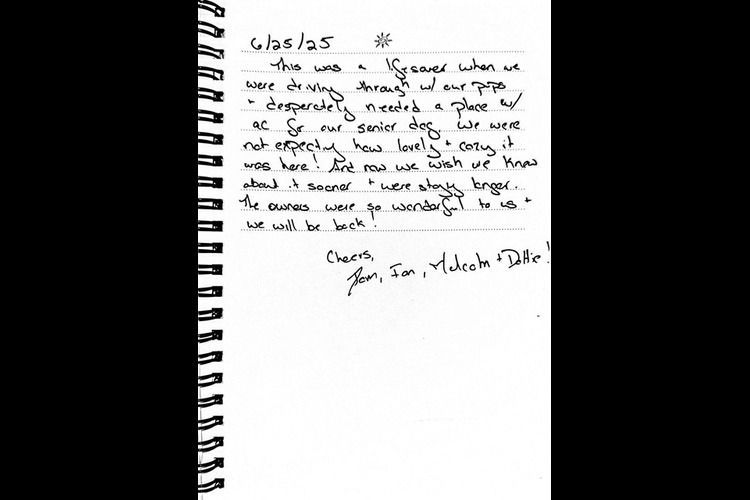 6/25/25
This was a lifesaver when we
were driving through w/ our pups
+ desperately needed a place w/
ac for our senior dog. We were
not expecting how lovely + cozy it
was here! And now we wish we knew
about it sooner + were staying longer.
The owners were so wonderful to us +
we will be back!
Cheers,
Ian, Malcolm + Dottie!